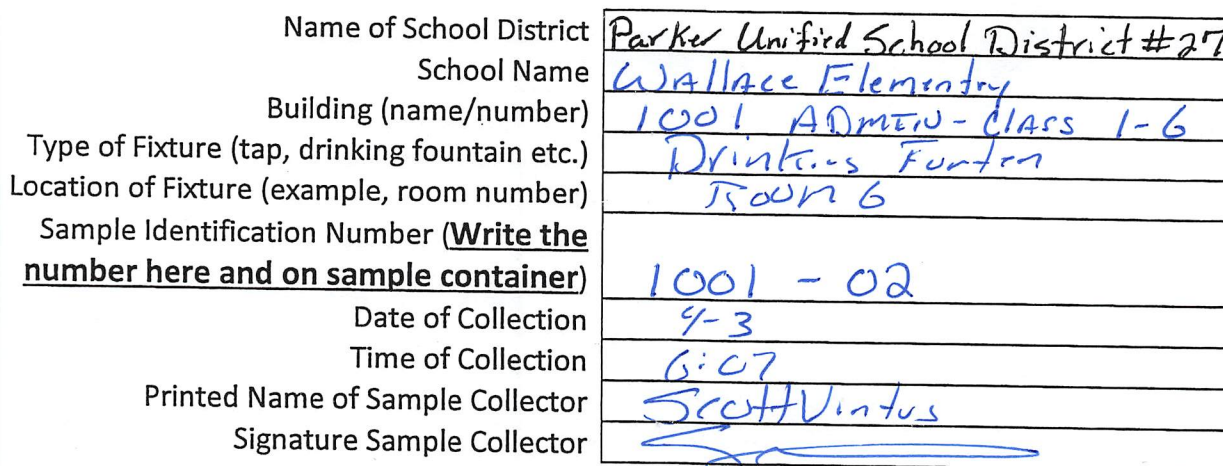 Name of School District Parker Unified School District #27
School Name Wallace Elementry
Building (name/number) 1001 ADMIN-ClAss 1-6
Type of Fixture (tap, drinking fountain etc.) Drinking
Location of Fixture (example, room number) Room 6
Sample Identification Number (Write the
number here and on sample container) 1001 - 02
Date of Collection 4-3
Time of Collection 6:07
Printed Name of Sample Collector Scott
Signature Sample Collector